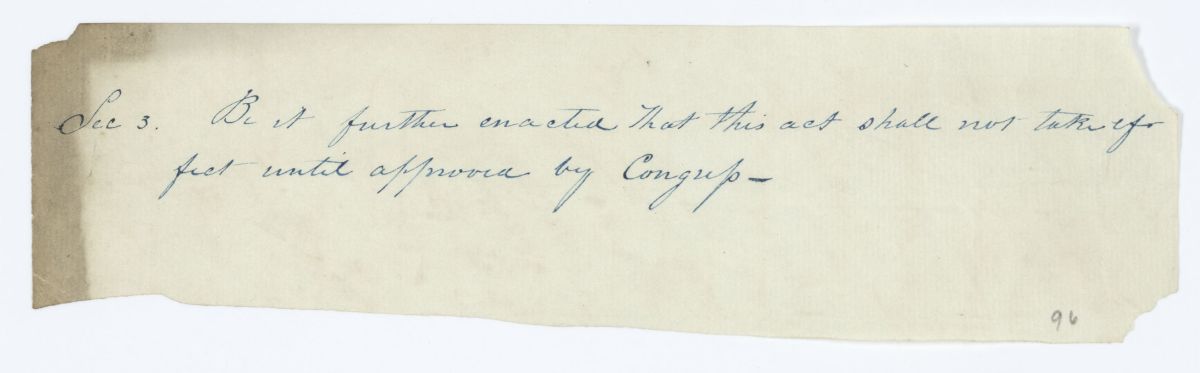 Sec 3. Be it further enacted That this act shall not take ef-
fect until approved by Congress -
96